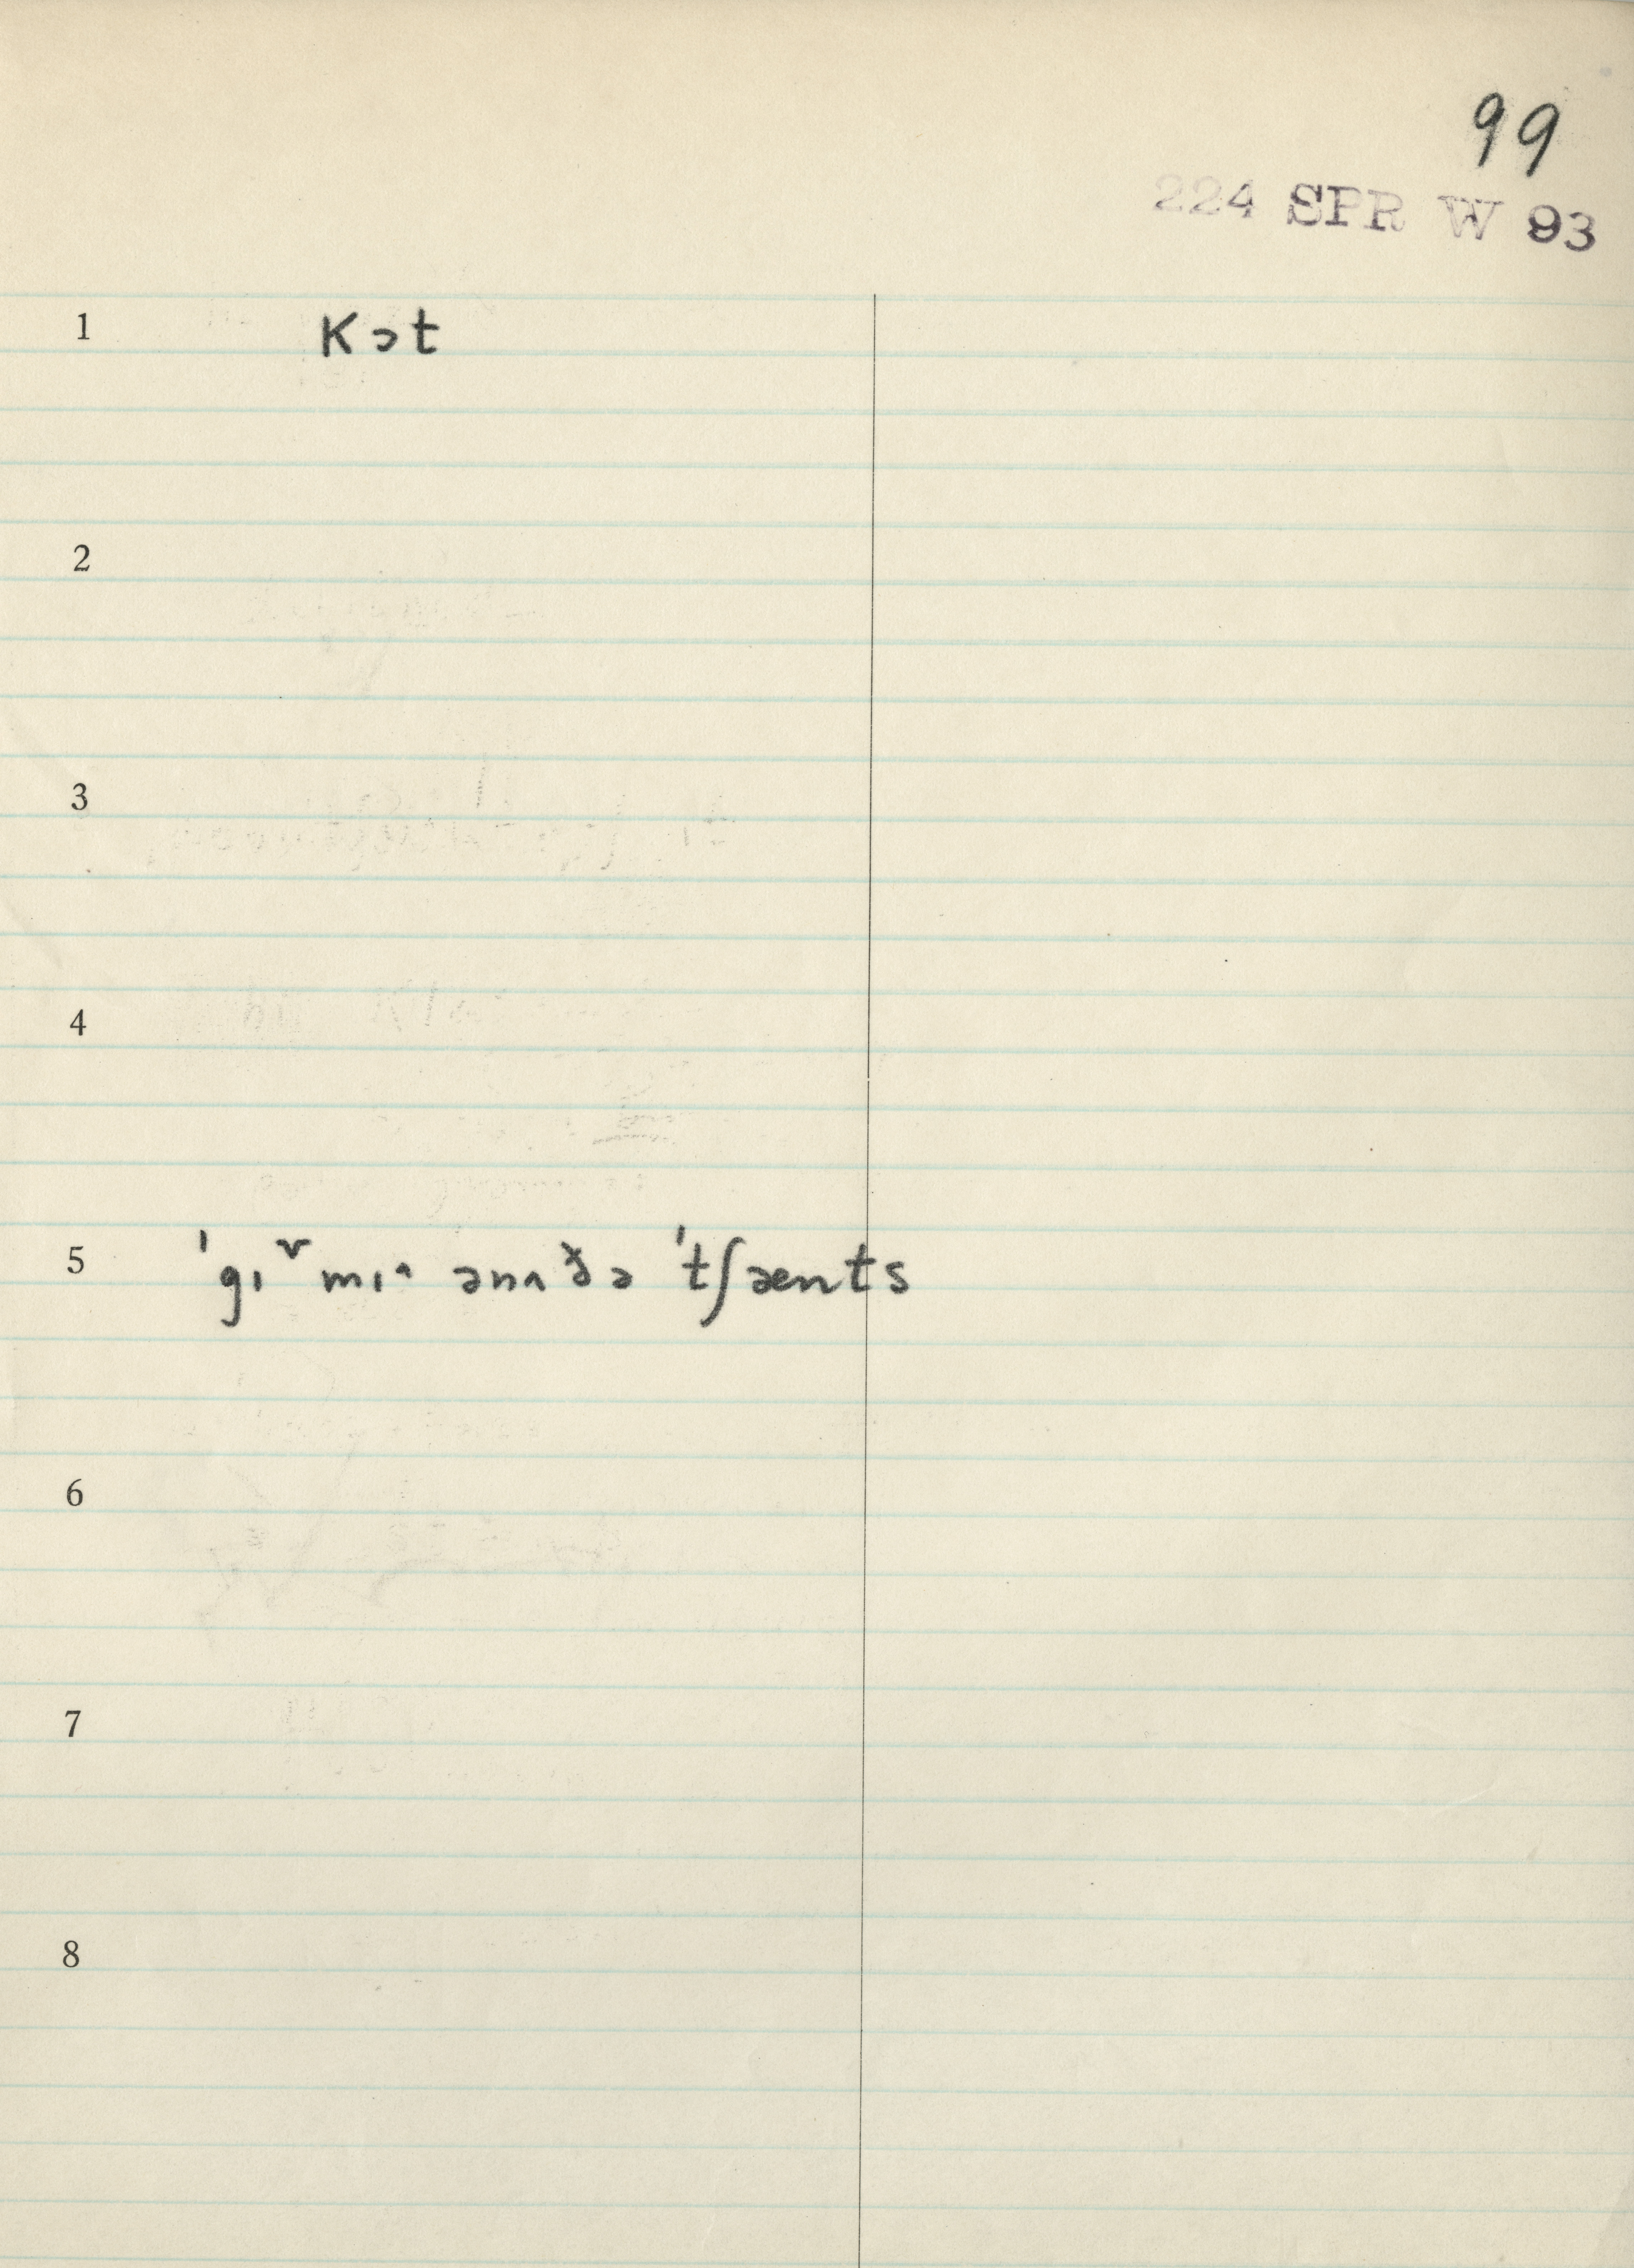 99
224 SPR W 93
1 kɔt
2
3
4
5 ˈgɪᵛmɪ˄ ənʌðə ˈtʃænts
6
7
8